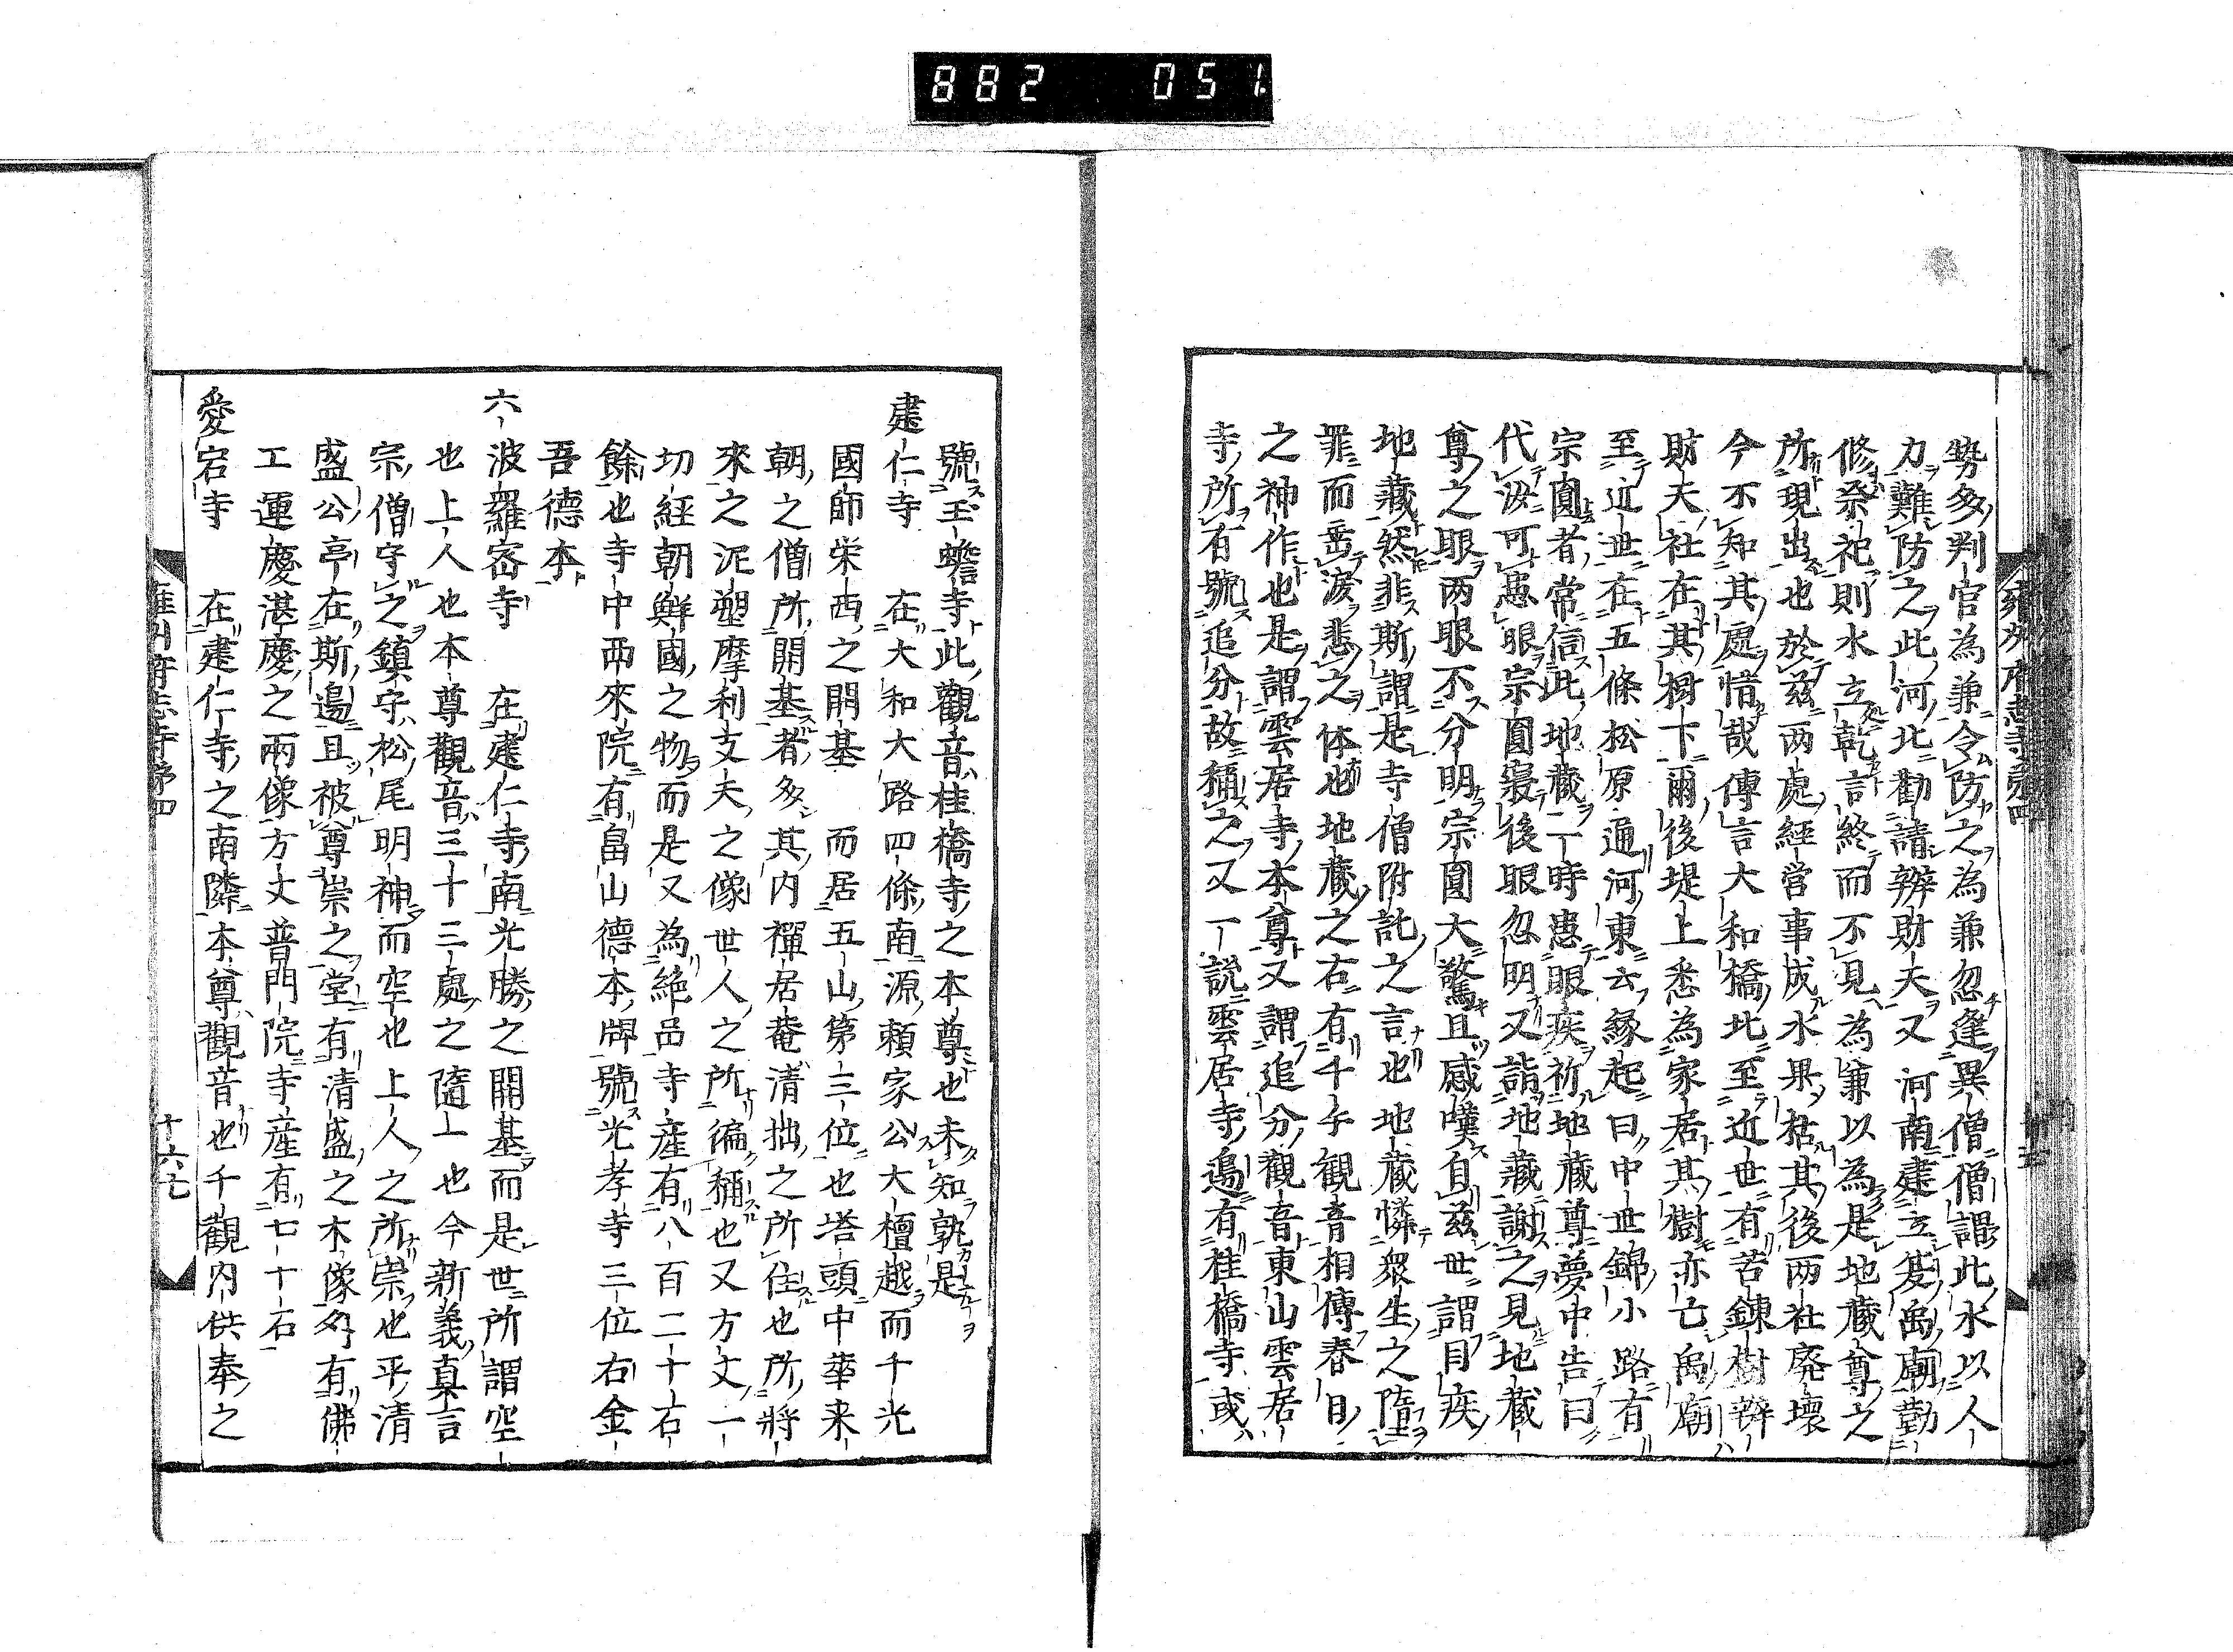 882 051
勢多判官為兼令防之為兼忽逢異僧僧謂此水以人
力難防之此河北勸請辨財天又河南建立夏禹廟勤
修祭祀則水立乾言終而不見為兼以為是地藏尊之
所現出也於茲两處經営事成水果枯其後两社廃壞
今不知其處惜哉傳言大和橋北至近世有苦楝樹辨
財天社在其樹下爾後堤上悉為家居其樹亦亡禹廟
至近世在五條松原通河東云縁起曰中世錦小路有
宗圓者常信此地藏一時患眼疾祈地藏尊夢中告曰
代汝可患眼宗圓寝後眼忽明又詣地藏謝之見地藏
尊之眼两眼不分明宗圓大驚且感嘆自茲世謂目疾
地藏然非斯謂是寺僧附託之言也地藏憐衆生之墮
罪而垂淚悲之体也地藏之右有千手観音相傳春日
之神作也是謂雲居寺本尊又謂追分觀音東山雲居
寺所有號追分故稱之又一説雲居寺邉有桂橋寺或
號玉蟾寺此觀音桂橋寺之本尊也未知孰是
建仁寺　在大和大路四條南源頼家公大檀越而千光
國師栄西之開基　而居五山第三位也塔頭中華来
朝之僧所開基者多其内禪居菴清拙之所住也所將
來之泥塑摩利支天之像世人之所徧稱也又方丈一
切經朝鮮國之物而是又為絶品寺産有八百二十石
餘也寺中两來院有畠山德本牌號光孝寺三位右金
吾德本
六波羅宻寺　在建仁寺南光勝之開基而是世所謂空
也上人也本尊觀音三十三處之隨一也今新義真言
宗僧守之鎮守松尾明神而空也上人之所崇也平清
盛公亭在斯邉且被尊崇之堂有清盛之木像夛有佛
工運慶湛慶之兩像方丈普門院寺産有七十石
愛宕寺　在建仁寺之南隣本尊觀音也千觀内供奉之
十六七